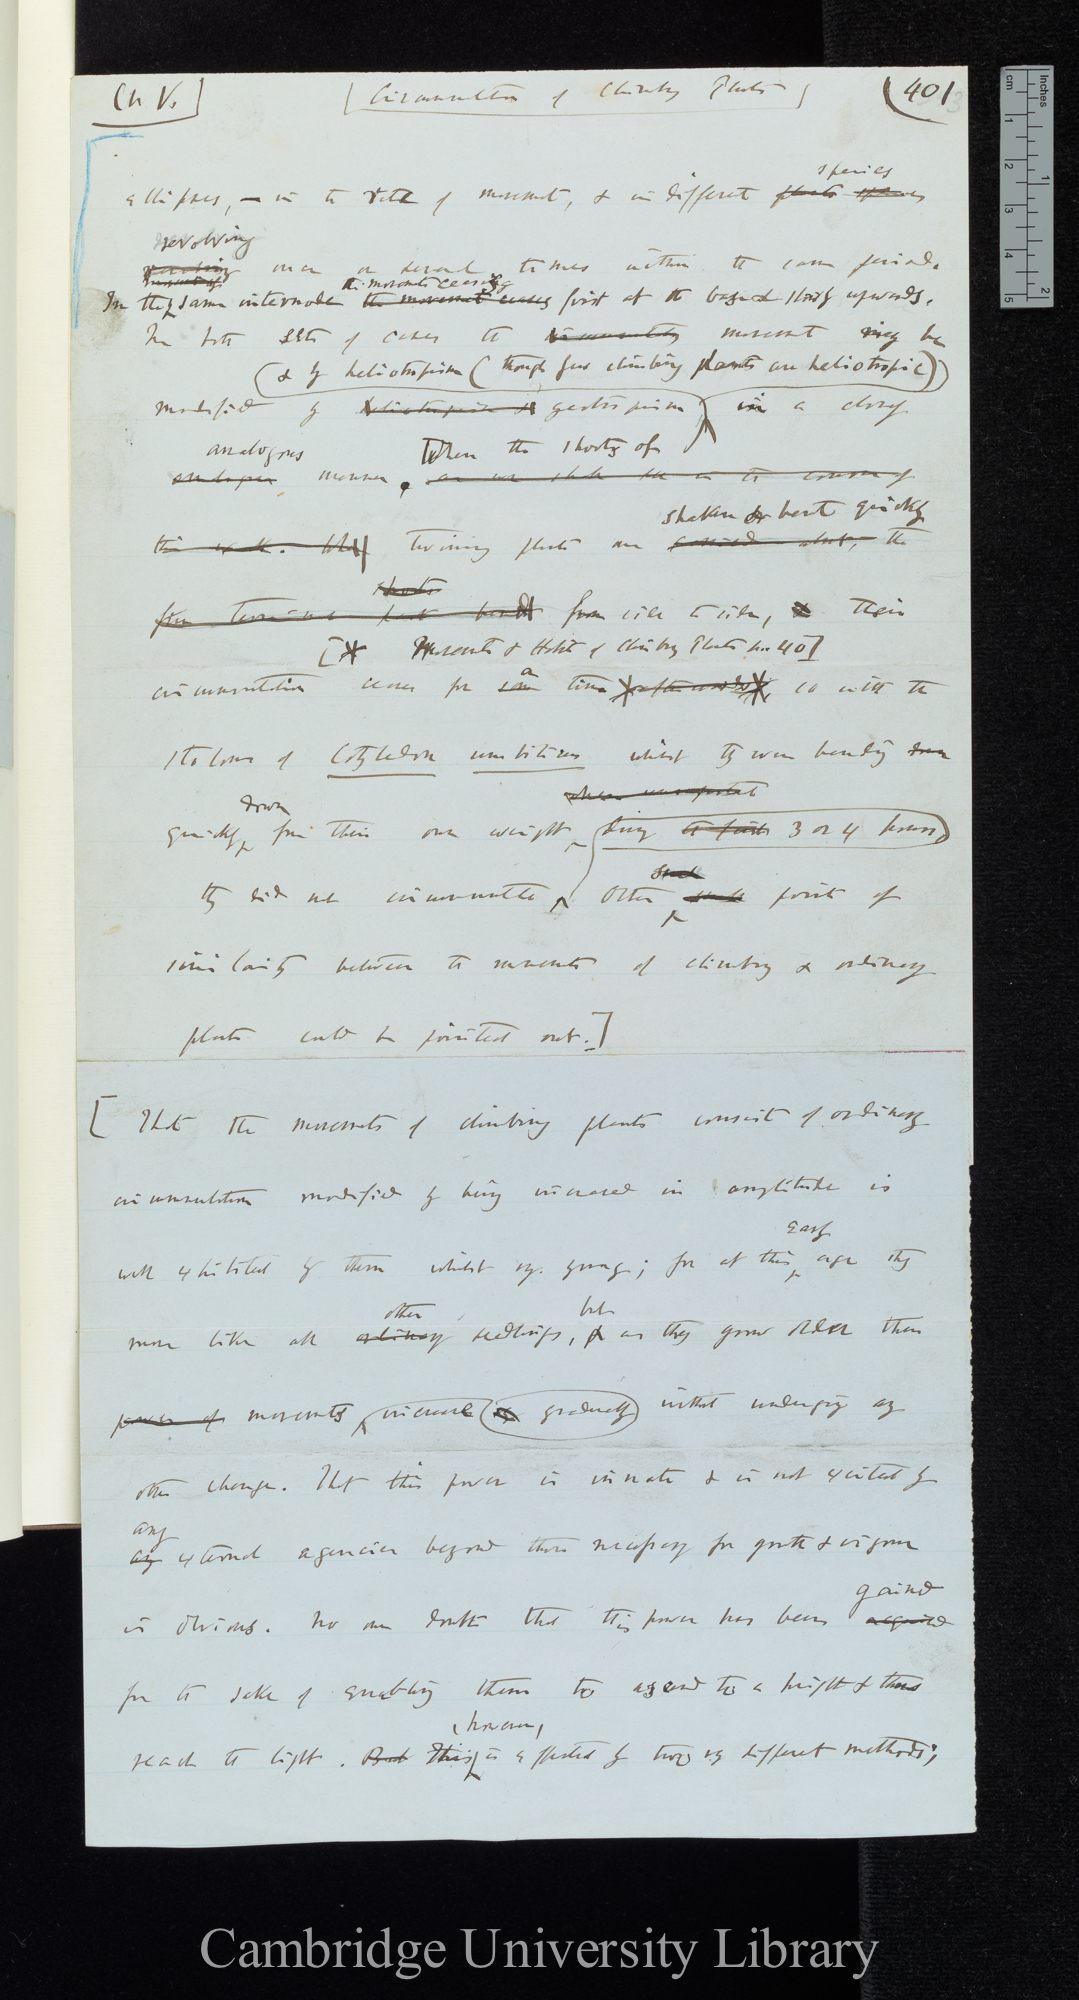 Ch V.] [Circumnutation of Climbing Plants] (401
species
ellipses, — in the rate of movement, & in different plants species
revolving
revolving once or several times within the same period.
In the same internode the movements ceasing the movement ceases first at the base & slowly upwards.
In both sets of cases the circumnutating movement may be
(& by heliotropism (though few climbing plants are heliotropic))
modified by heliotropism & geotropism in a closely
analogous [When the shoots of
analogous manner, as we shall see in the course of
shaken or bent quickly
this work. When twining plants are the
shoots
from side to side, their
[* Movements & Habits of Climbing Plants p. 40]
circumnutation ceases for some a time * afterwards *, so with the
stolons of Cotyledon umbilicus whilst they were bending down
when unsupported
down
quickly from their own weight, during the first 3 or 4 hours
they did not circumnutate. Other such points of
similarity between the movements of climbing & ordinary
plants could be pointed out.]
[That the movements of climbing plants consist of ordinary
circumnutation modified by being increased in amplitude is
early
well exhibited by them whilst vy. young; for at this age they
other but
move like all ordinary seedlings, as they grow older their
power of movements increase gradually without undergoing any
other change. That this power is innate & is not excited by
any
any external agencies beyond those necessary for growth & vigour
gained
is obvious. No one doubts that this power has been acquired
for the sake of enabling them to ascend to a height & thus
(however,
reach the light. But This is effected by two vy different methods;
Cambridge University Library
inches
cm
1
2
3
4
5
1
2